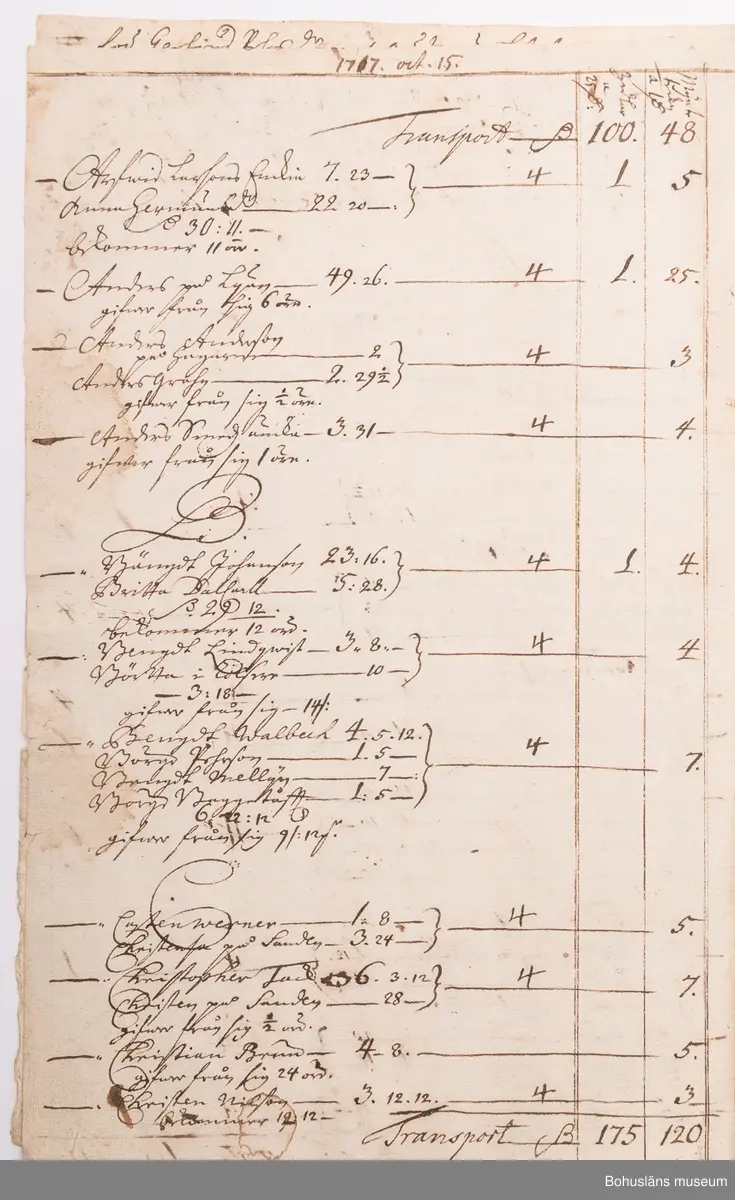 1717. oct. 15.
Transport 100. 48
Arfwid Larsons Enkia 7. 23 — 4 1 5
Anna Hermans 22 20 —
30 : 11. —
bekommer 11 öre.
Anders på Lyan — 49. 26. 4 1. 25.
gifwer från sig 6 öre.
Anders Anderson
på — 2 4 3
Anders Grahn — 2. 29 ½
gifwer från sig ½ öre.
Anders Smeds Enkia — 3. 31 — 4 4.
gifwer från sig 1 öre.
B.
" Bängdt Johanson 23 : 16. 4 1. 4.
Britta — 5 : 28.
29 12.
bekommer 12 öre.
Bengdt Lindqwist — 3 " 8 " — 4 4
Börta i — 10 —
— 3 : 18 —
gifwer från sig — 14
" Bengdt Walbeck 4. 5. 12. 4 7.
Börge Pehrson — 1. 5 —
Bengdt Mellin — 7 —
Börge — 1 : 5 —
6. 22 : 12
gifwer från sig 9 : 12
C
" Casten Werner — 1 " 8 — 4 5.
Christensa på Sanden — 3. 24 —
Christopher 36. 3. 12 4 7.
Christen på Sanden — 28 —
gifwer från sig ½ öre.
" Christian Brun — 4 — 8. 5.
gifwer från sig 24 öre.
" Christen Nilson — 3. 12. 12. 4 3
bekommer 12 12 —
Transport 175 120
Bohusläns museum